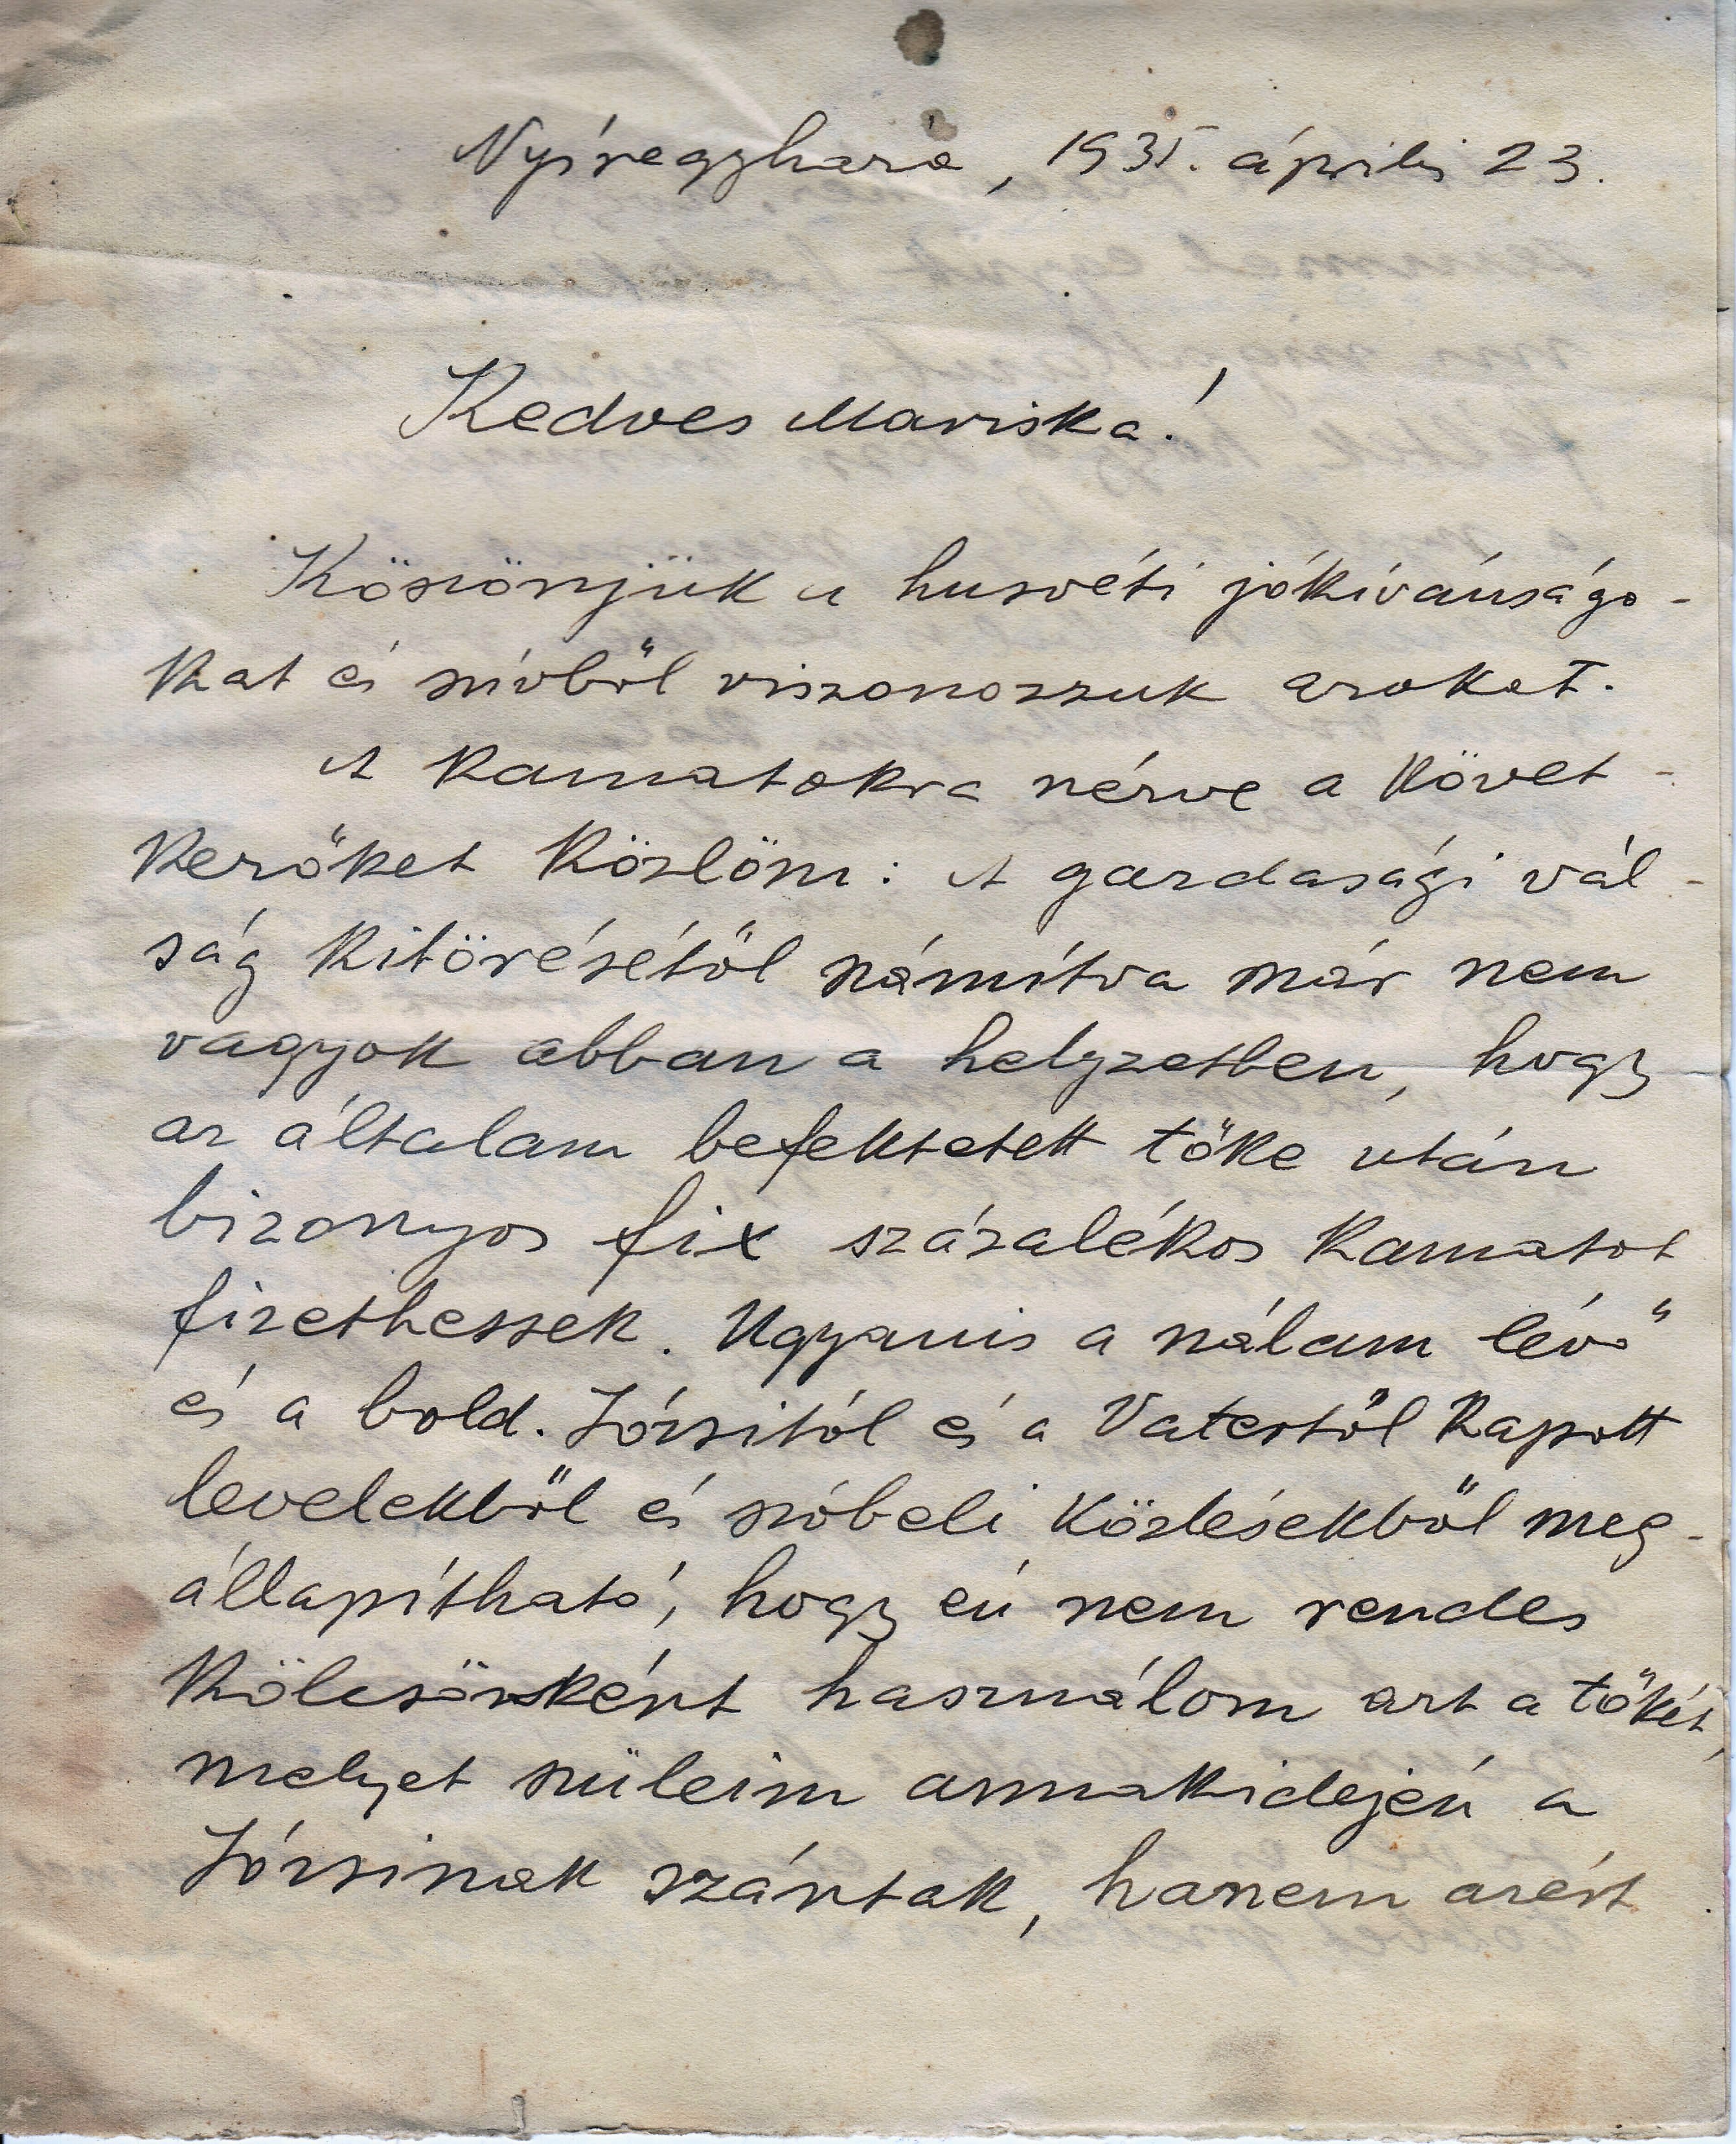 Nyíregyháza, 1935. április 23.
Kedves Mariska!
Köszönjük a husvéti jókívánságo-
kat és szívből viszonozzuk azokat.
A kamatokra nézve a követ-
kezőket közlöm: A gazdasági vál-
ság kitörésétől számítva már nem
vagyok abban a helyzetben, hogy
az általam befektetett tőke után
bizonyos fix százalékos kamatot
fizethessek. Ugyanis a nálam lévő
és a bold. Józsitól és a Vatertől kapott
levelekből és szóbeli közlésekből meg-
állapítható, hogy én nem rendes
kölcsönként használom azt a tőkét,
melyet szüleim annakidején a
Józsinak szántak, hanem azért